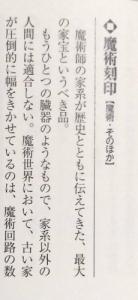 魔術刻印【魔術・そのほか】
魔術師の家系が歴史とともに伝えてきた、最大
の家宝というべき品。
もうひとつの臓器のようなもので、家系以外の
人間には適合しない。魔術世界において、古い家
が圧倒的に幅をきかせているのは、魔術回路の数